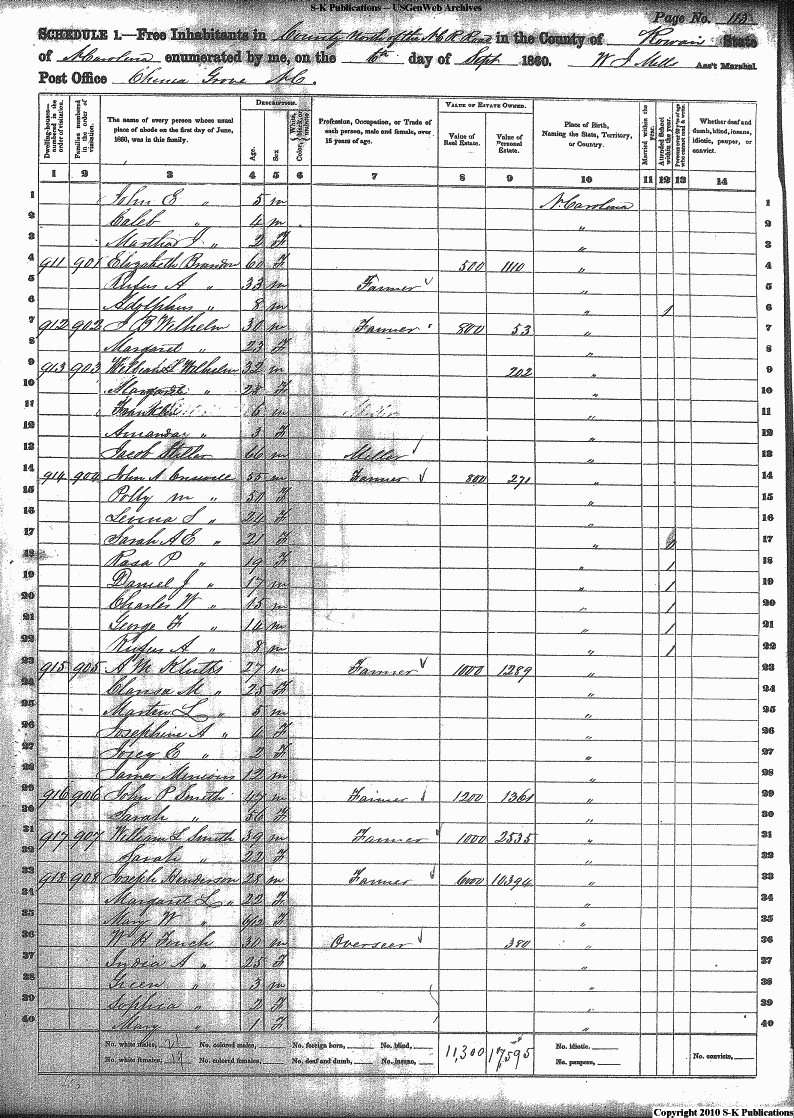 S-K Publications – USGenWeb Archives
Page No. 112
SCHEDULE 1.—Free Inhabitants in County North of the N C R Road in the County of Rowan State
of N Carolina enumerated by me, on the 6th day of Sept 1860. W J Mills Ass't Marshal
Post Office China Grove N.C.
Dwelling-houses—numbered in the order of visitation.
Families numbered in the order of visitation.
The name of every person whose usual place of abode on the first day of June, 1860, was in this family.
DESCRIPTION.
Age.
Sex
Color,
Profession, Occupation, or Trade of each person, male and female, over 15 years of age.
VALUE OF ESTATE OWNED.
Value of Real Estate.
Value of Personal Estate.
Place of Birth, Naming the State, Territory, or Country.
Married within the year.
Attended School within the year.
Persons over 20 y'rs of age who cannot read & write.
Whether deaf and dumb, blind, insane, idiotic, pauper, or convict.
1 2 3 4 5 6 7 8 9 10 11 12 13 14
1 John E " 5 m N Carolina 1
2 Caleb " 4 m " 2
3 Martha J " 2 F " 3
4 911 901 Elizabeth Brandon 60 F 500 1110 " 4
5 Rufus A " 33 m Farmer " 5
6 Adolphus " 8 m " 1 6
7 912 902 J B Wilhelm 30 m Farmer 800 53 " 7
8 Margaret " 23 F " 8
9 913 903 L Wilhelm 32 m 202 " 9
10 Margaret " 28 F " 10
11 Franklin 6 m " 11
12 Amanda " 3 F " 12
13 Jacob 66 m Miller " 13
14 914 904 John A 55 m Farmer 800 271 " 14
15 Polly m " 50 F " 15
16 Levina S " 24 F " 16
17 Sarah A E " 21 F " 17
18 Rosa P " 19 F " 1 18
19 Daniel J " 17 m " 1 19
20 Charles W " 15 m " 1 20
21 George F " 14 m " 1 21
22 Rufus A " 8 m " 1 22
23 915 905 A M Kluttz 27 m Farmer 1000 1289 " 23
24 M " 25 F " 24
25 Martin L " 5 m " 25
26 Josephine A " 4 F " 26
27 Joicy E " 2 F " 27
28 James 12 m " 28
29 916 906 John P Smith 47 m Farmer 1200 1361 " 29
30 Sarah " 56 F " 30
31 917 907 William L Smith 39 m Farmer 1000 2535 " 31
32 Sarah " 22 F " 32
33 918 908 Joseph Henderson 28 m Farmer 6000 10394 " 33
34 Margaret L " 22 F " 34
35 Mary W " F " 35
36 W H Fouch 30 m Overseer 380 " 36
37 India A " 25 F " 37
38 Green " 3 m " 38
39 Sophia " 2 F " 39
40 Mary " 1 F " 40
No. white males, 21 No. colored males, No. foreign born, No. blind, 11,300 17,595 No. idiotic. No. convicts,
No. white females, 19 No. colored females, No. deaf and dumb, No. insane, No. paupers,
Copyright 2010 S-K Publications